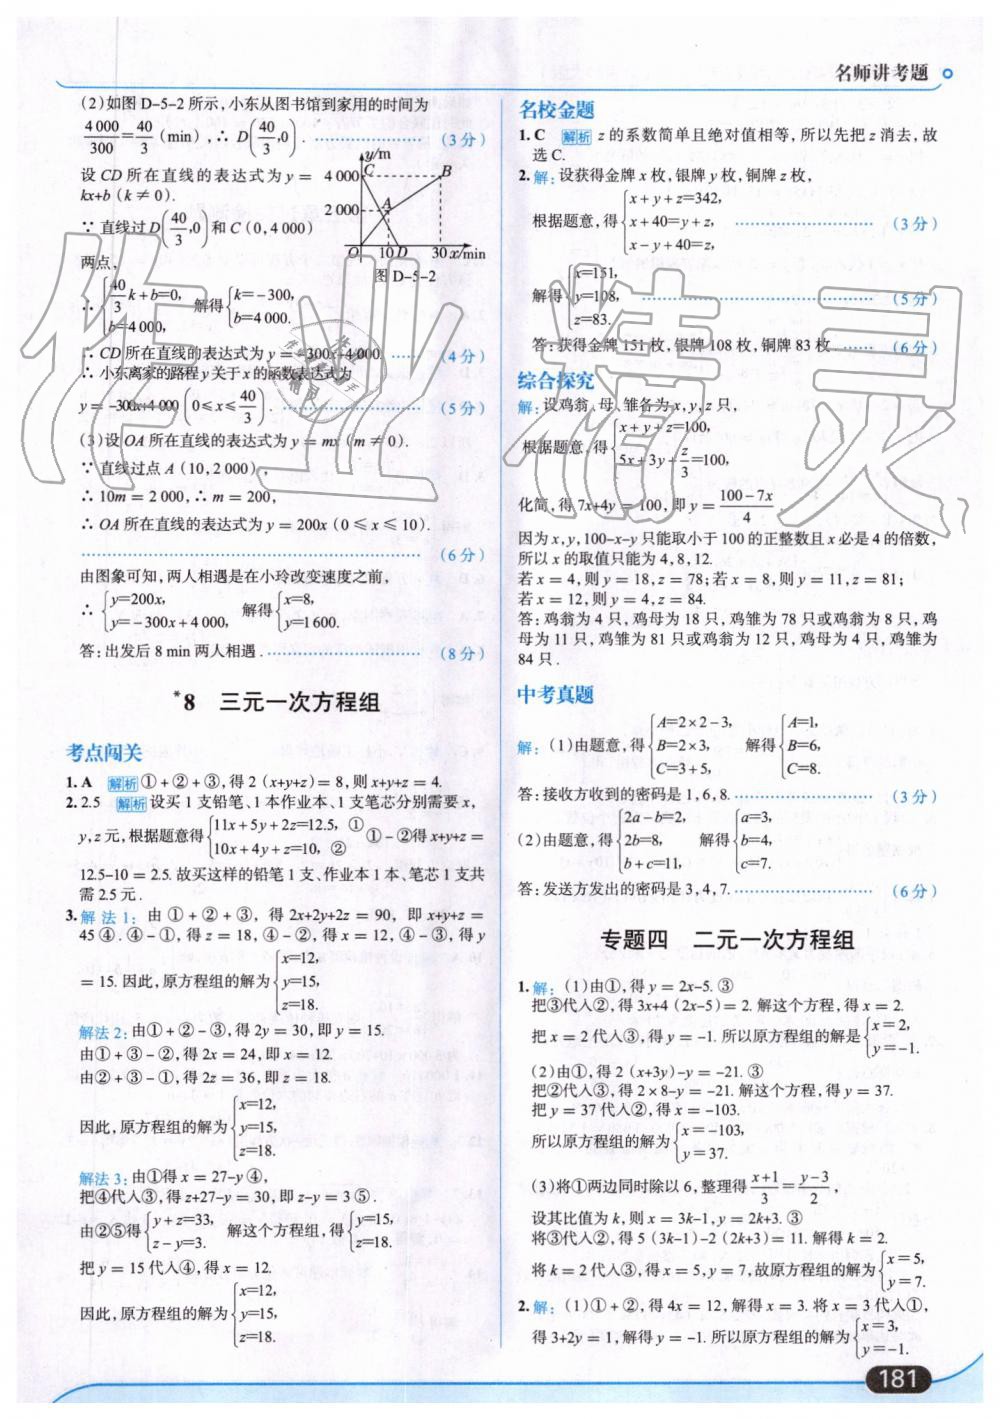 名师讲考题
(2)如图 D-5-2 所示,小东从图书馆到家用的时间为
4 000/300=40/3(min),∴ D(40/3,0). (3分)
设 CD 所在直线的表达式为 y =
kx+b (k ≠ 0).
∵ 直线过 D(40/3,0)和 C (0,4 000)
两点,
∴ {40/3 k+b=0, b=4 000, 解得{k=-300, b=4 000.
y/m
4 000 C B
2 000 A
O 10 D 30 x/min
图 D-5-2
∴ CD 所在直线的表达式为 y = -300x+4 000. (4分)
∴ 小东离家的路程 y 关于 x 的函数表达式为
y = -300x+4 000 (0≤x≤40/3). (5分)
(3)设 OA 所在直线的表达式为 y = mx (m ≠ 0).
∵ 直线过点 A (10,2 000),
∴ 10m = 2 000,∴ m = 200,
∴ OA 所在直线的表达式为 y = 200x (0 ≤ x ≤ 10).
(6分)
由图象可知,两人相遇是在小玲改变速度之前,
∴ {y=200x, y=-300x+4 000, 解得{x=8, y=1 600.
答:出发后 8 min 两人相遇. (8分)
*8 三元一次方程组
考点闯关
1. A 解析 ①+②+③,得 2 (x+y+z) = 8,则 x+y+z = 4.
2. 2.5 解析 设买 1 支铅笔、1 本作业本、1 支笔芯分别需要 x,
y,z 元,根据题意得{11x+5y+2z=12.5, ① 10x+4y+z=10, ② ①-②得 x+y+z =
12.5-10 = 2.5. 故买这样的铅笔 1 支、作业本 1 本、笔芯 1 支共
需 2.5 元.
3. 解法 1: 由 ①+②+③, 得 2x+2y+2z = 90, 即 x+y+z =
45 ④. ④-①,得 z = 18,④-②,得 x = 12,④-③,得 y
= 15. 因此,原方程组的解为{x=12, y=15, z=18.
解法 2:由①+②-③,得 2y = 30,即 y = 15.
由①+③-②,得 2x = 24,即 x = 12.
由②+③-①,得 2z = 36,即 z = 18.
因此,原方程组的解为{x=12, y=15, z=18.
解法 3:由①得 x = 27-y ④,
把④代入③,得 z+27-y = 30,即 z-y = 3 ⑤.
由②⑤得{y+z=33, z-y=3. 解这个方程组,得{y=15, z=18.
把 y = 15 代入④,得 x = 12.
因此,原方程组的解为{x=12, y=15, z=18.
名校金题
1. C 解析 z 的系数简单且绝对值相等,所以先把 z 消去,故
选 C.
2. 解:设获得金牌 x 枚,银牌 y 枚,铜牌 z 枚,
根据题意,得{x+y+z=342, x+40=y+z, x-y+40=z, (3分)
解得{x=151, y=108, z=83. (5分)
答:获得金牌 151 枚,银牌 108 枚,铜牌 83 枚. (6分)
综合探究
解:设鸡翁、母、雏各为 x,y,z 只,
根据题意,得{x+y+z=100, 5x+3y+z/3=100,
化简,得 7x+4y = 100,即 y = 100-7x/4.
因为 x,y,100-x-y 只能取小于 100 的正整数且 x 必是 4 的倍数,
所以 x 的取值只能为 4,8,12.
若 x = 4,则 y = 18,z = 78;若 x = 8,则 y = 11,z = 81;
若 x = 12,则 y = 4,z = 84.
答:鸡翁为 4 只,鸡母为 18 只,鸡雏为 78 只或鸡翁为 8 只,鸡
母为 11 只,鸡雏为 81 只或鸡翁为 12 只,鸡母为 4 只,鸡雏为
84 只.
中考真题
解:(1)由题意,得{A=2×2-3, B=2×3, C=3+5, 解得{A=1, B=6, C=8.
答:接收方收到的密码是 1,6,8. (3分)
(2)由题意,得{2a-b=2, 2b=8, b+c=11, 解得{a=3, b=4, c=7.
答:发送方发出的密码是 3,4,7. (6分)
专题四 二元一次方程组
1. 解:(1)由①,得 y = 2x-5. ③
把③代入②,得 3x+4 (2x-5) = 2. 解这个方程,得 x = 2.
把 x = 2 代入③,得 y = -1. 所以原方程组的解是{x=2, y=-1.
(2)由①,得 2 (x+3y)-y = -21. ③
把②代入③,得 2×8-y = -21. 解这个方程,得 y = 37.
把 y = 37 代入②,得 x = -103.
所以原方程组的解为{x=-103, y=37.
(3)将①两边同时除以 6,整理得 x+1/3 = y-3/2,
设其比值为 k,则 x = 3k-1,y = 2k+3. ③
将③代入②,得 5 (3k-1)-2 (2k+3) = 11. 解得 k = 2.
将 k = 2 代入③,得 x = 5,y = 7,故原方程组的解为{x=5, y=7.
2. 解:(1)①+②,得 4x = 12,解得 x = 3. 将 x = 3 代入①,
得 3+2y = 1,解得 y = -1. 所以原方程组的解为{x=3, y=-1.
181
作业精灵